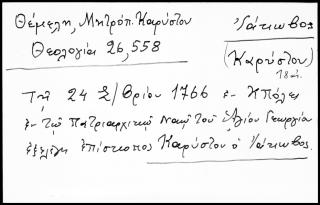 Θέμελη, Μητρόπ. Καρύστου
Ἰάκωβος
Θεολογία 26, 558
(Καρύστου)
18 αἰ.
Τῇ 24 Σ/βρίου 1766 ἐν Κ/πόλει
ἐν τῷ Πατριαρχικῷ Ναῷ τοῦ Ἁγίου Γεωργίου
ἐξελέγη ἐπίσκοπος Καρύστου ὁ Ἰάκωβος.